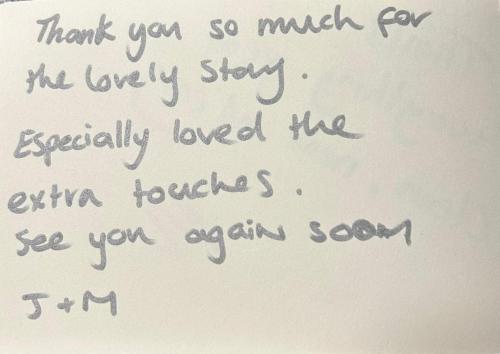 Thank you so much for
the lovely Stay.
Especially loved the
extra touches.
See you again soon
J + M